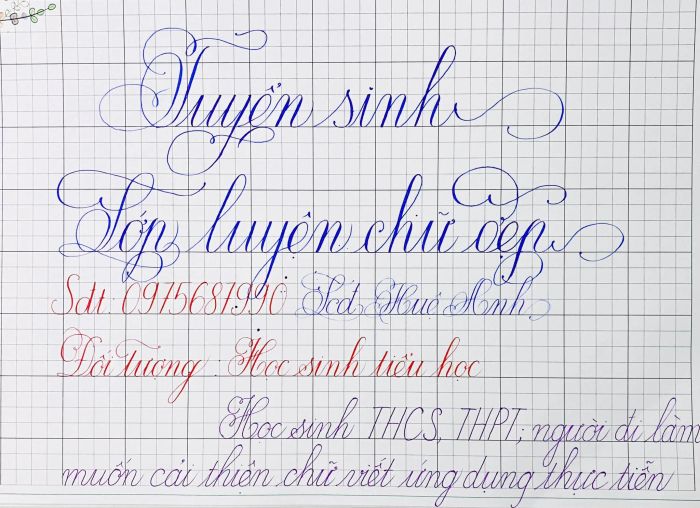 Tuyển sinh
Lớp luyện chữ đẹp
Sdt: 0975687990 Huệ Anh
Đối tượng: Học sinh tiểu học
Học sinh THCS, THPT; người đi làm
muốn cải thiện chữ viết ứng dụng thực tiễn